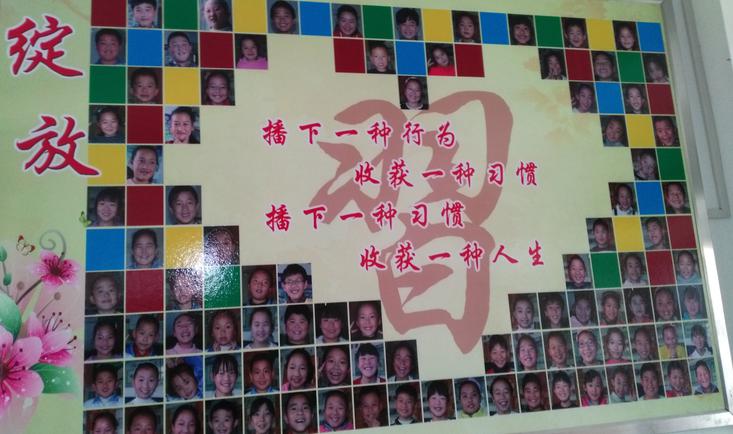 绽放
播下一种行为
收获一种习惯
播下一种习惯
收获一种人生
習